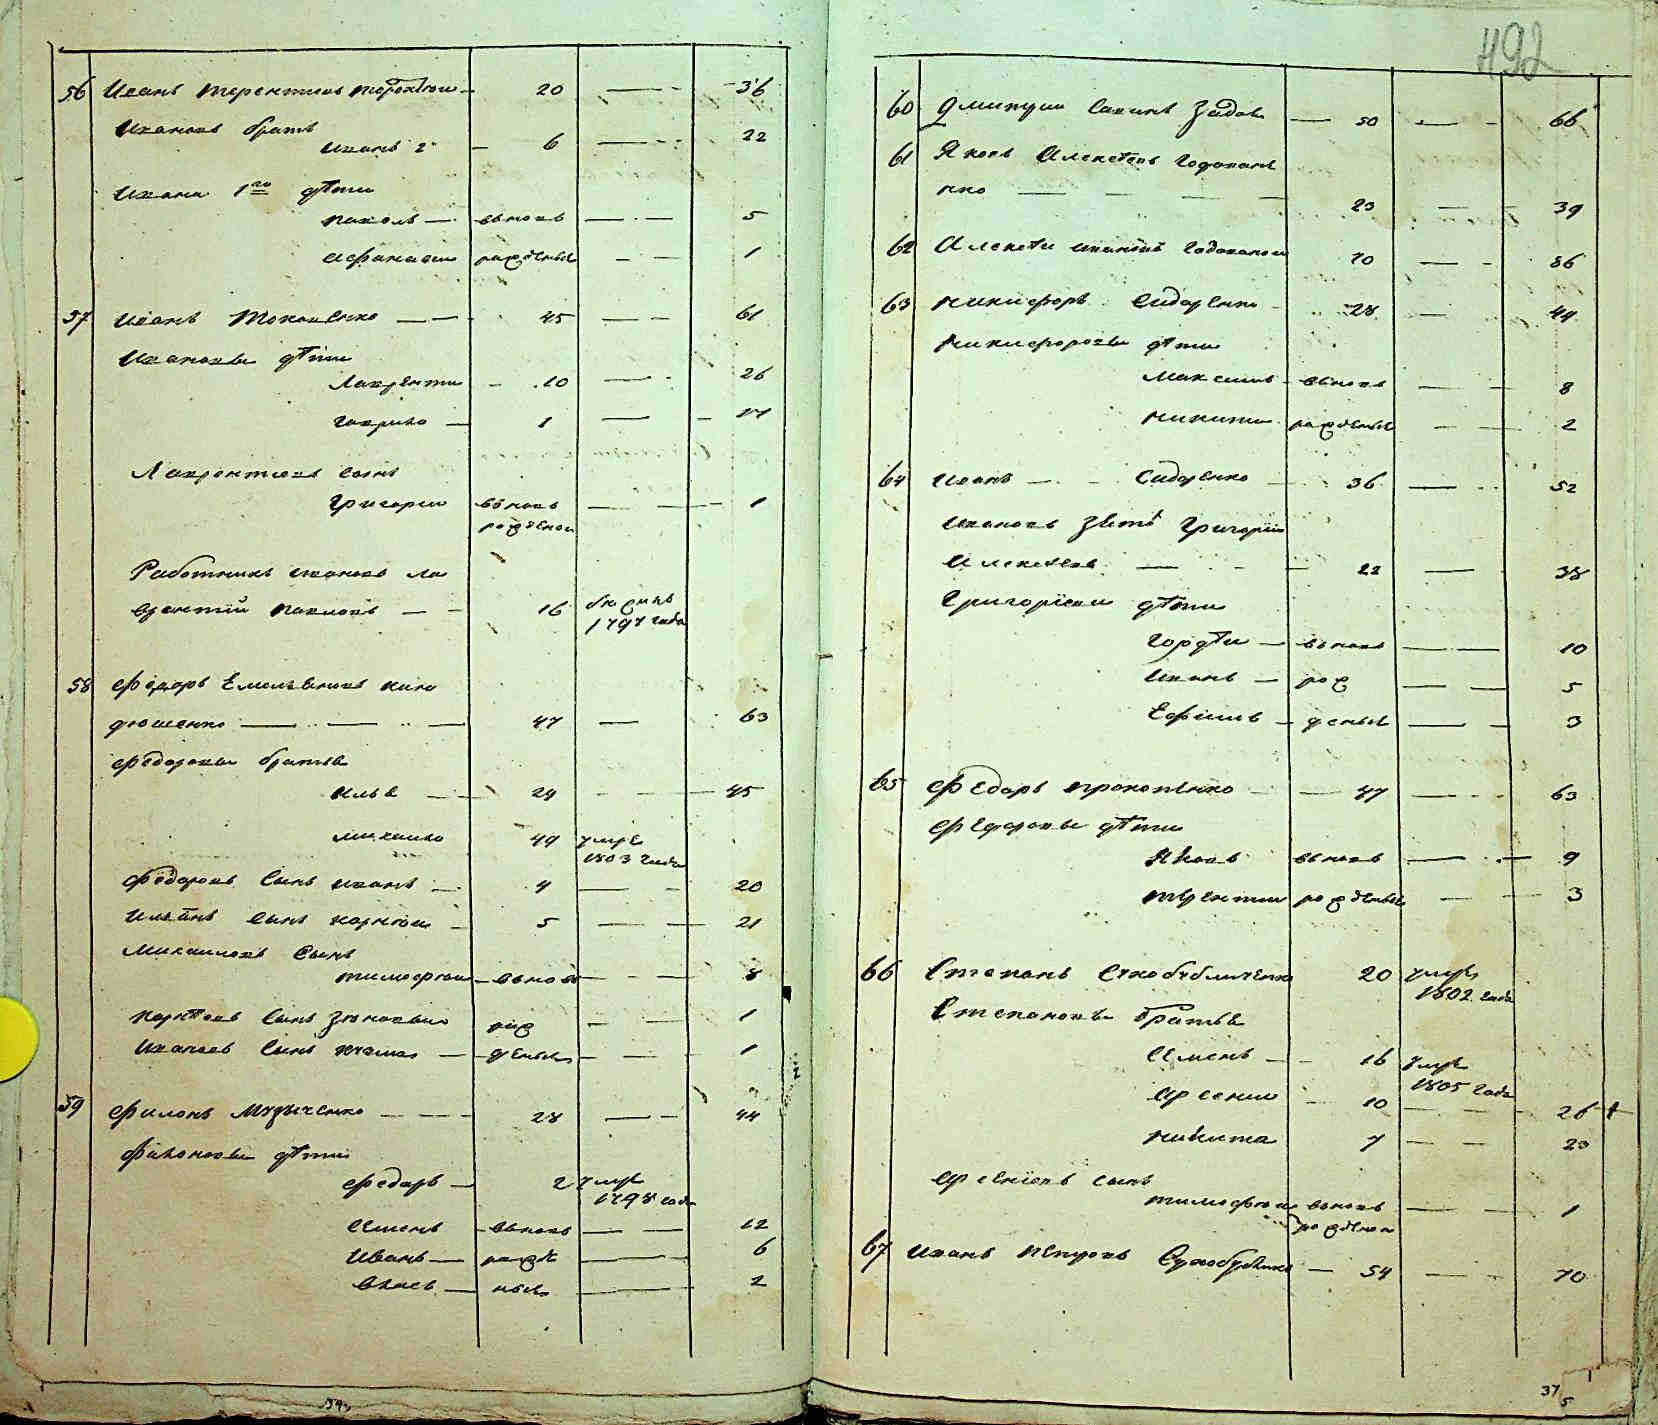 492
56 Иванъ Терентиевъ 20 — 36
Ивановъ братъ
Иванъ 2й — 6 — 22
Ивана 1го дѣти
Павелъ — вновь — 5
Афанасии рожденые — 1
57 Иванъ 45 — 61
Ивановы дѣти
Лаврентии — 10 — 26
Гаврило — 1 — 17
Лаврентиевъ сынъ
Григории вновь — 1
рожденои
Работникъ Ивановъ Ла
врентий Павловъ — 16 бѣжалъ
1797 года
58 Федоръ Емельяновъ Кин
дюшенко — 47 — 63
Федоровы братья
Илья — 29 — 45
Михаило 49 умре
1803 года
Федоровъ сынъ Иванъ — 4 — 20
Ильинъ сынъ Корнѣи — 5 — 21
Михаиловъ сынъ
Тимофеи — вновь — 8
Корнѣевъ сынъ Зиновьи рож — 1
Ивановъ сынъ — деные — 1
59 Филонъ Музыченко — 28 — 44
Филоновы дѣти
Федоръ — 2 умре
1798 года
Семенъ — вновь — 12
Иванъ — рожде — 6
Власъ — ные — 2
60 Дмитрии Савинъ — 50 — 66
61 Яковъ Алексѣевъ Годован
нко — 23 — 39
62 Алексѣи Ивановъ 70 — 86
63 Никифоръ Сидоренко — 28 — 44
Никифоровы дѣти
Максимъ — вновь — 8
Никита рожденые — 2
64 Иванъ — Сидоренко — 36 — 52
Ивановъ зять Григории
Алексѣевъ — 22 — 38
Григориевы дѣти
Гордѣи — вновь — 10
Иванъ — рож — 5
Ефимъ — деные — 3
65 Федоръ Прокопенко — 47 — 63
Федоровы дѣти
Яковъ вновь — 9
Терентии рожденые — 3
66 Степанъ 20 умре
1802 года
Степановы братья
Семенъ — 16 умре
1805 года
Арсении — 10 — 26 +
Никита 7 — 23
Арсениевъ сынъ
Тимофеи вновь — 1
рожденои
67 Иванъ Петровъ — 54 — 70
37
5